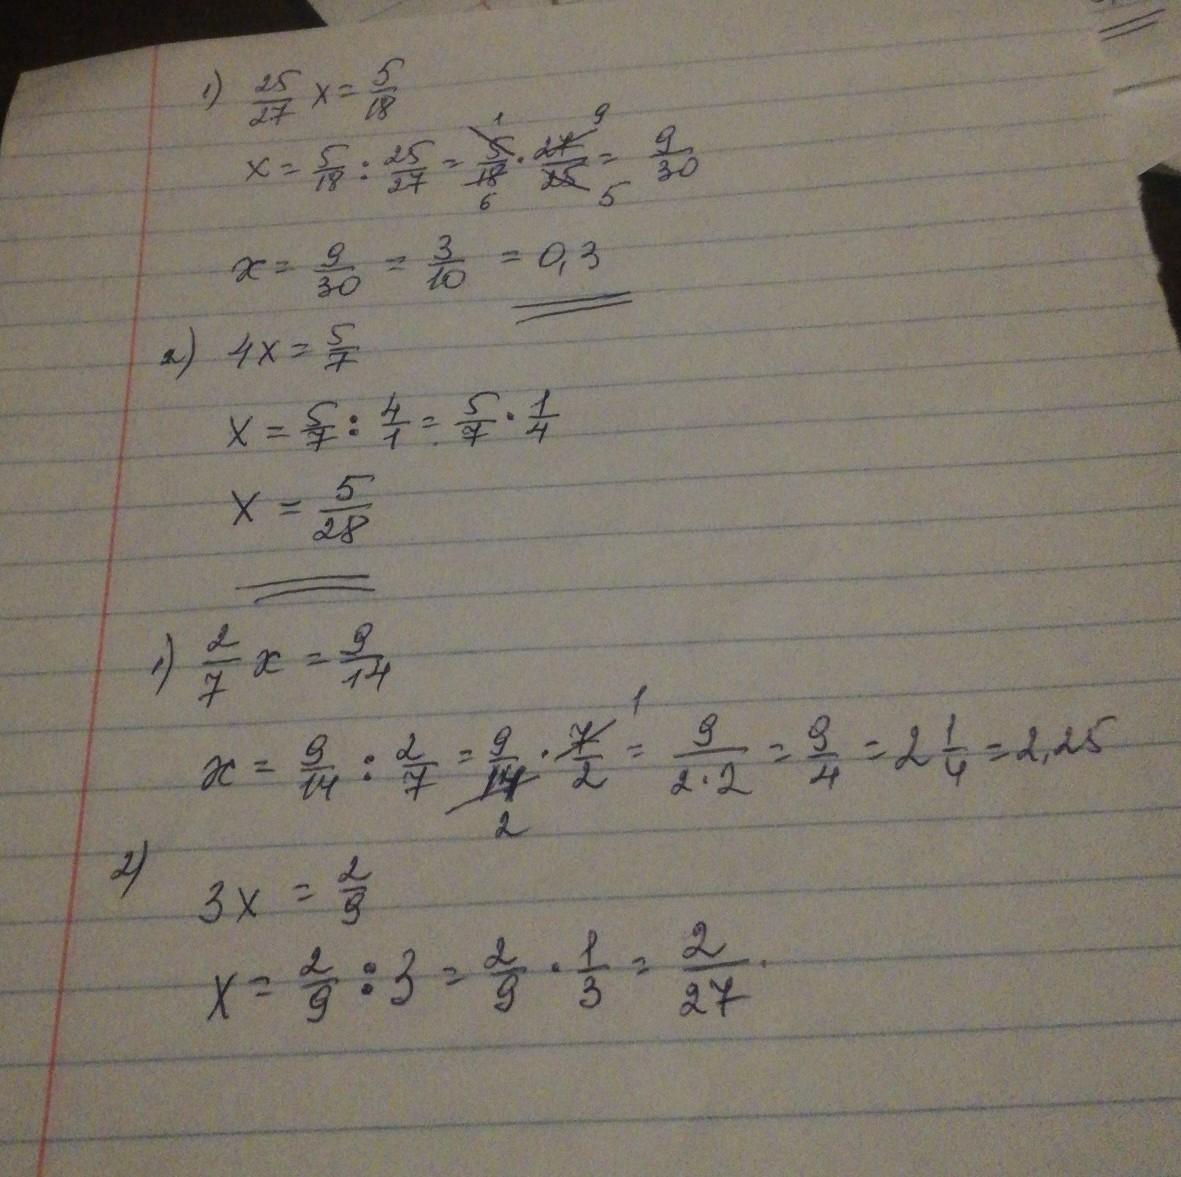 1) 25/27 x = 5/18
x = 5/18 : 25/27 = 5/18 · 27/25 = 9/30
1 9
6 5
x = 9/30 = 3/10 = 0,3
2) 4x = 5/7
x = 5/7 : 4/1 = 5/7 · 1/4
x = 5/28
1) 2/7 x = 9/14
x = 9/14 : 2/7 = 9/14 · 7/2 = 9/2·2 = 9/4 = 2 1/4 = 2,25
1
2
2)
3x = 2/9
x = 2/9 : 3 = 2/9 · 1/3 = 2/27.